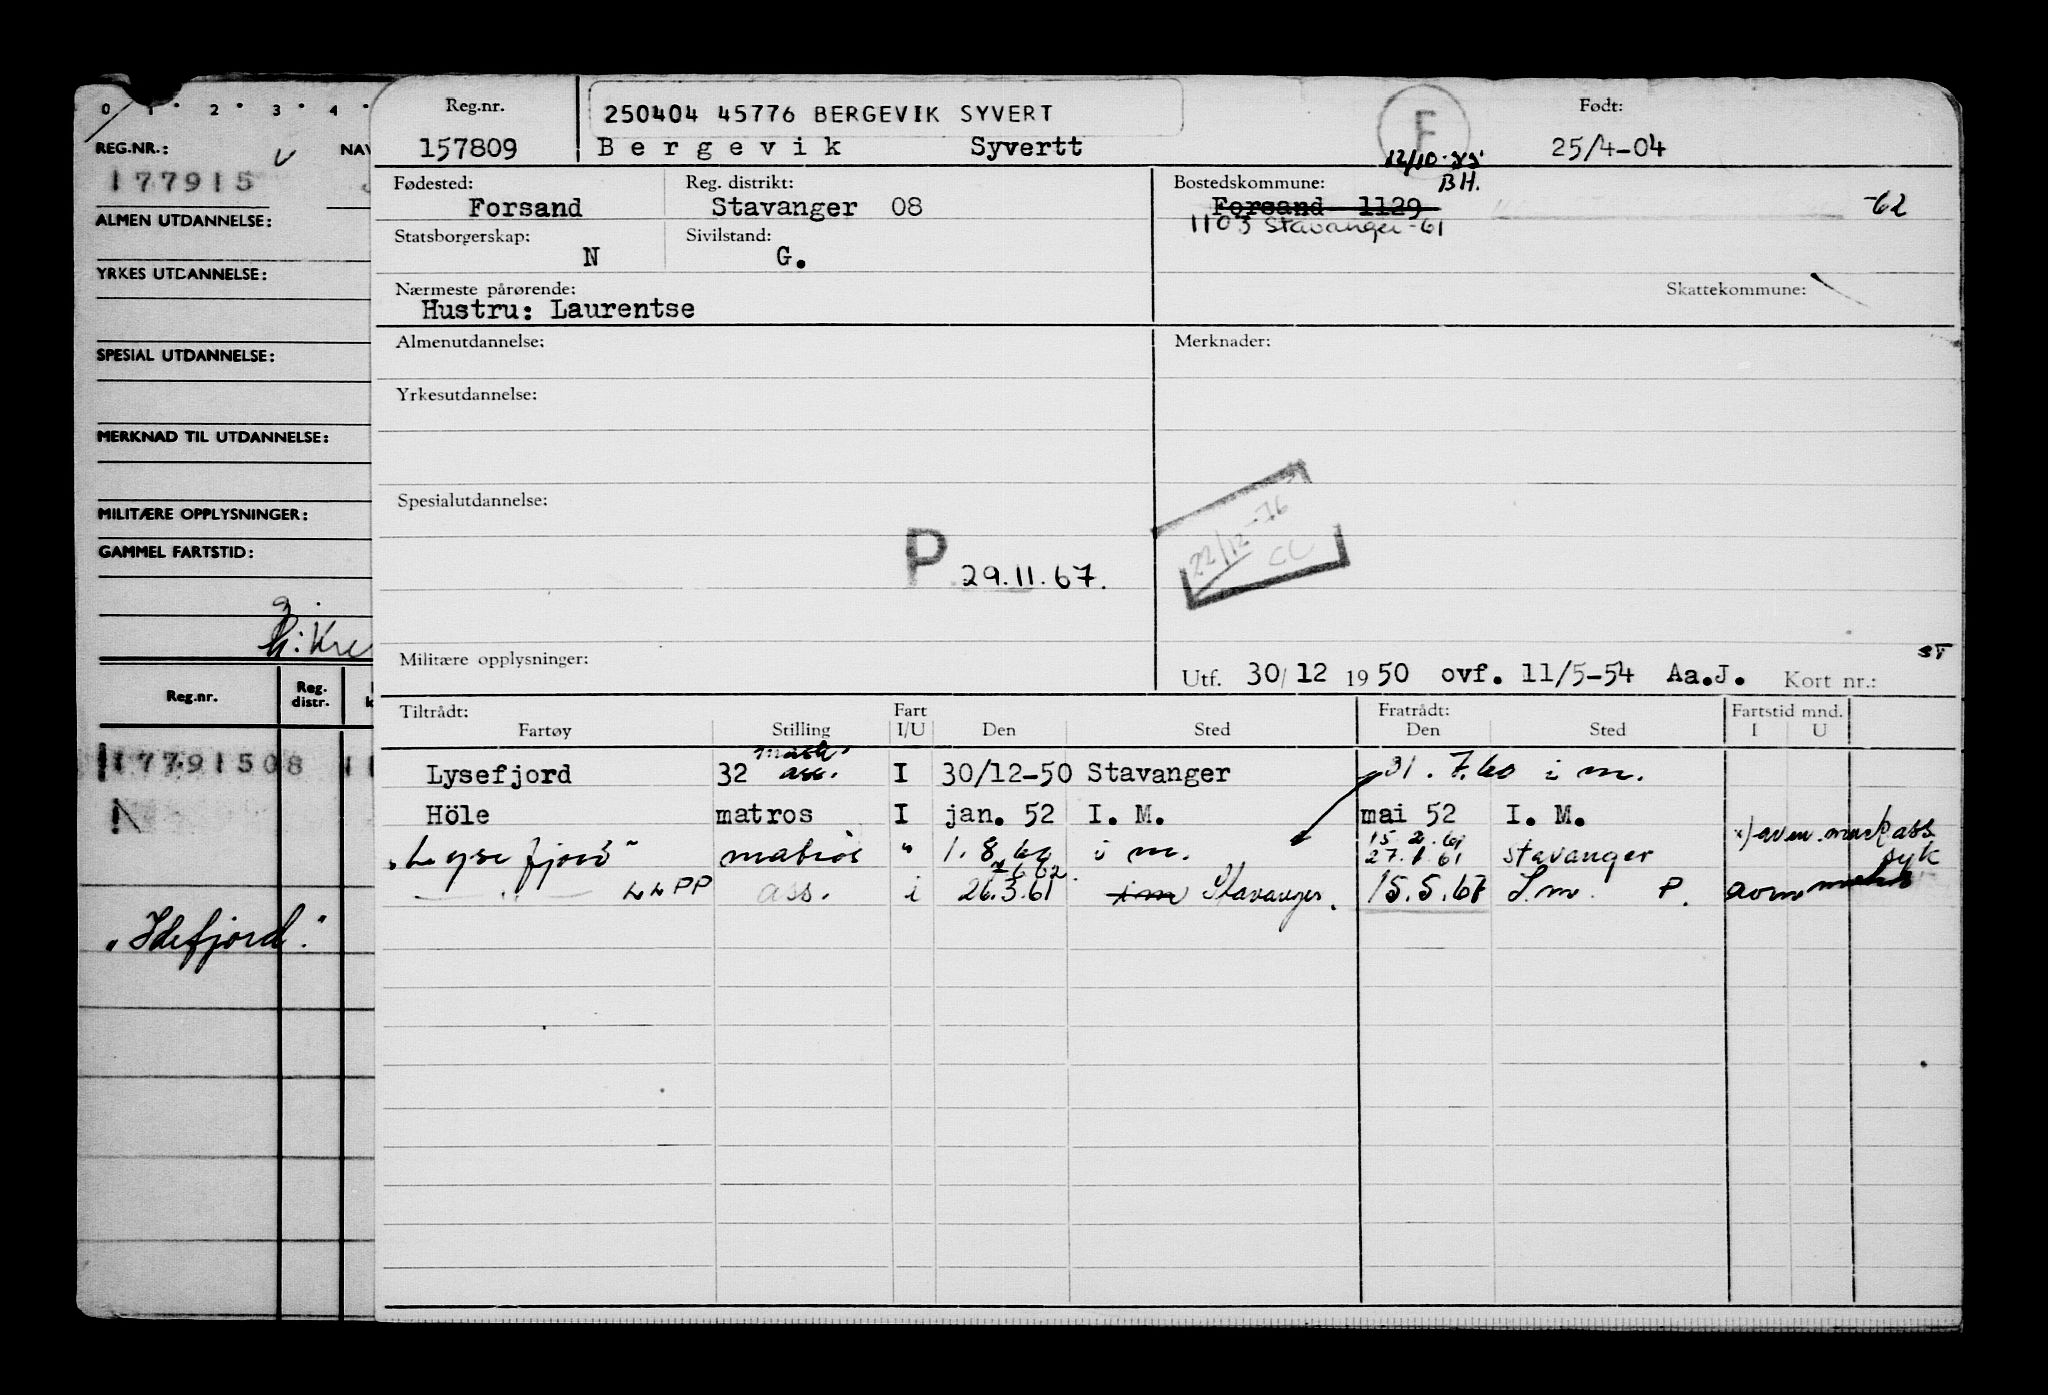 0 1 2 3 4
REG.NR.: NAV
177915
ALMEN UTDANNELSE:
YRKES UTDANNELSE:
SPESIAL UTDANNELSE:
MERKNAD TIL UTDANNELSE:
MILITÆRE OPPLYSNINGER:
GAMMEL FARTSTID:
Reg.nr. Reg. distr.
177915 08
N
"Idefjord."
Reg.nr. 250404 45776 BERGEVIK SYVERT F Født:
157809 Bergevik Syvertt 25/4-04
BH.
Fødested: Reg. distrikt: Bostedskommune:
Forsand Stavanger 08 Forsand 1129 -62
1103 Stavanger -61
Statsborgerskap: Sivilstand:
N G.
Nærmeste pårørende: Skattekommune:
Hustru: Laurentse
Almenutdannelse: Merknader:
Yrkesutdannelse:
Spesialutdannelse:
22/12-76
P 29.11.67.
Militære opplysninger:
Utf. 30/12 1950 ovf. 11/5-54 Aa.J. Kort nr.:
Tiltrådt: Fart Fratrådt: Fartstid mnd.
Fartøy Stilling I/U Den Sted Den Sted I U
Lysefjord 32 mask ass. I 30/12-50 Stavanger 31.7.60 i m.
Höle matros I jan. 52 I. M. mai 52 I. M.
"Lysefjord" matros " 1.8.60 i m. 15.2.61 27.1.61 Stavanger
ass. i 26.3.61 i m Stavanger. 15.5.67 I.m. P.